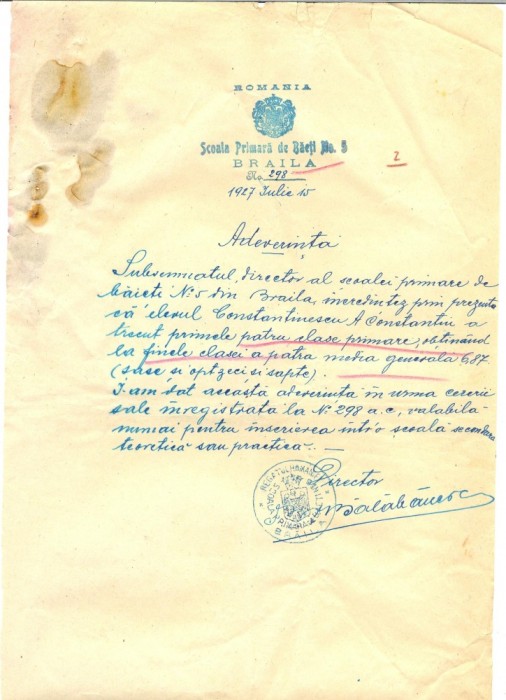 ROMANIA
Școala Primară de Băeți No. 5
BRAILA
No. 298
2
1927 Iulie 15
Adeverința
Subsemnatul, director al scoalei primare de
băieti No 5 din Braila, incredințez prin prezenta
că elevul Constantinescu A Constantin a
trecut primele patru clase primare, obtinând
la finele clasei a patra media generala 6.87
(sase si optzeci si sapte).
I-am dat această adeverința în urma cererii
sale înregistrata la No 298 a.c., valabilă
numai pentru înscrierea într'o școală secondara
teoretică sau practică. —
Director
REGATUL ROMANIEI
BRAILA